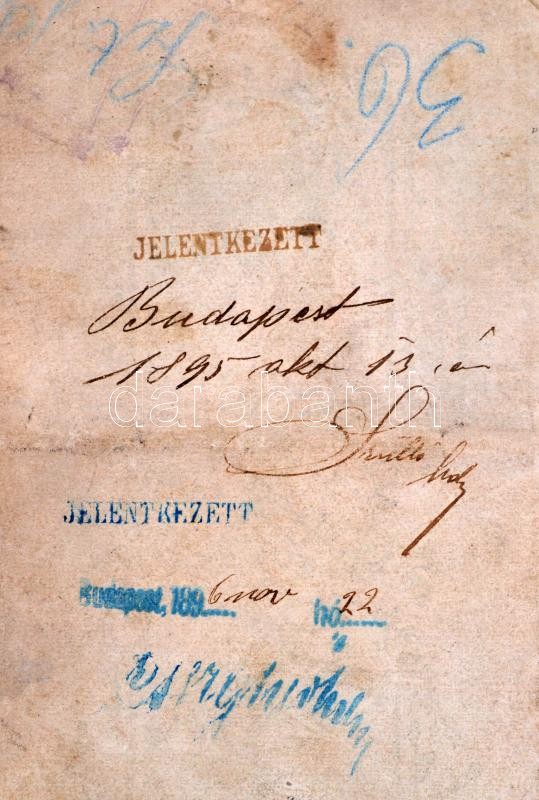 36.
JELENTKEZETT
Budapest
1895 okt 13.án
JELENTKEZETT
Budapest, 1896 nov hó 22
darabanth